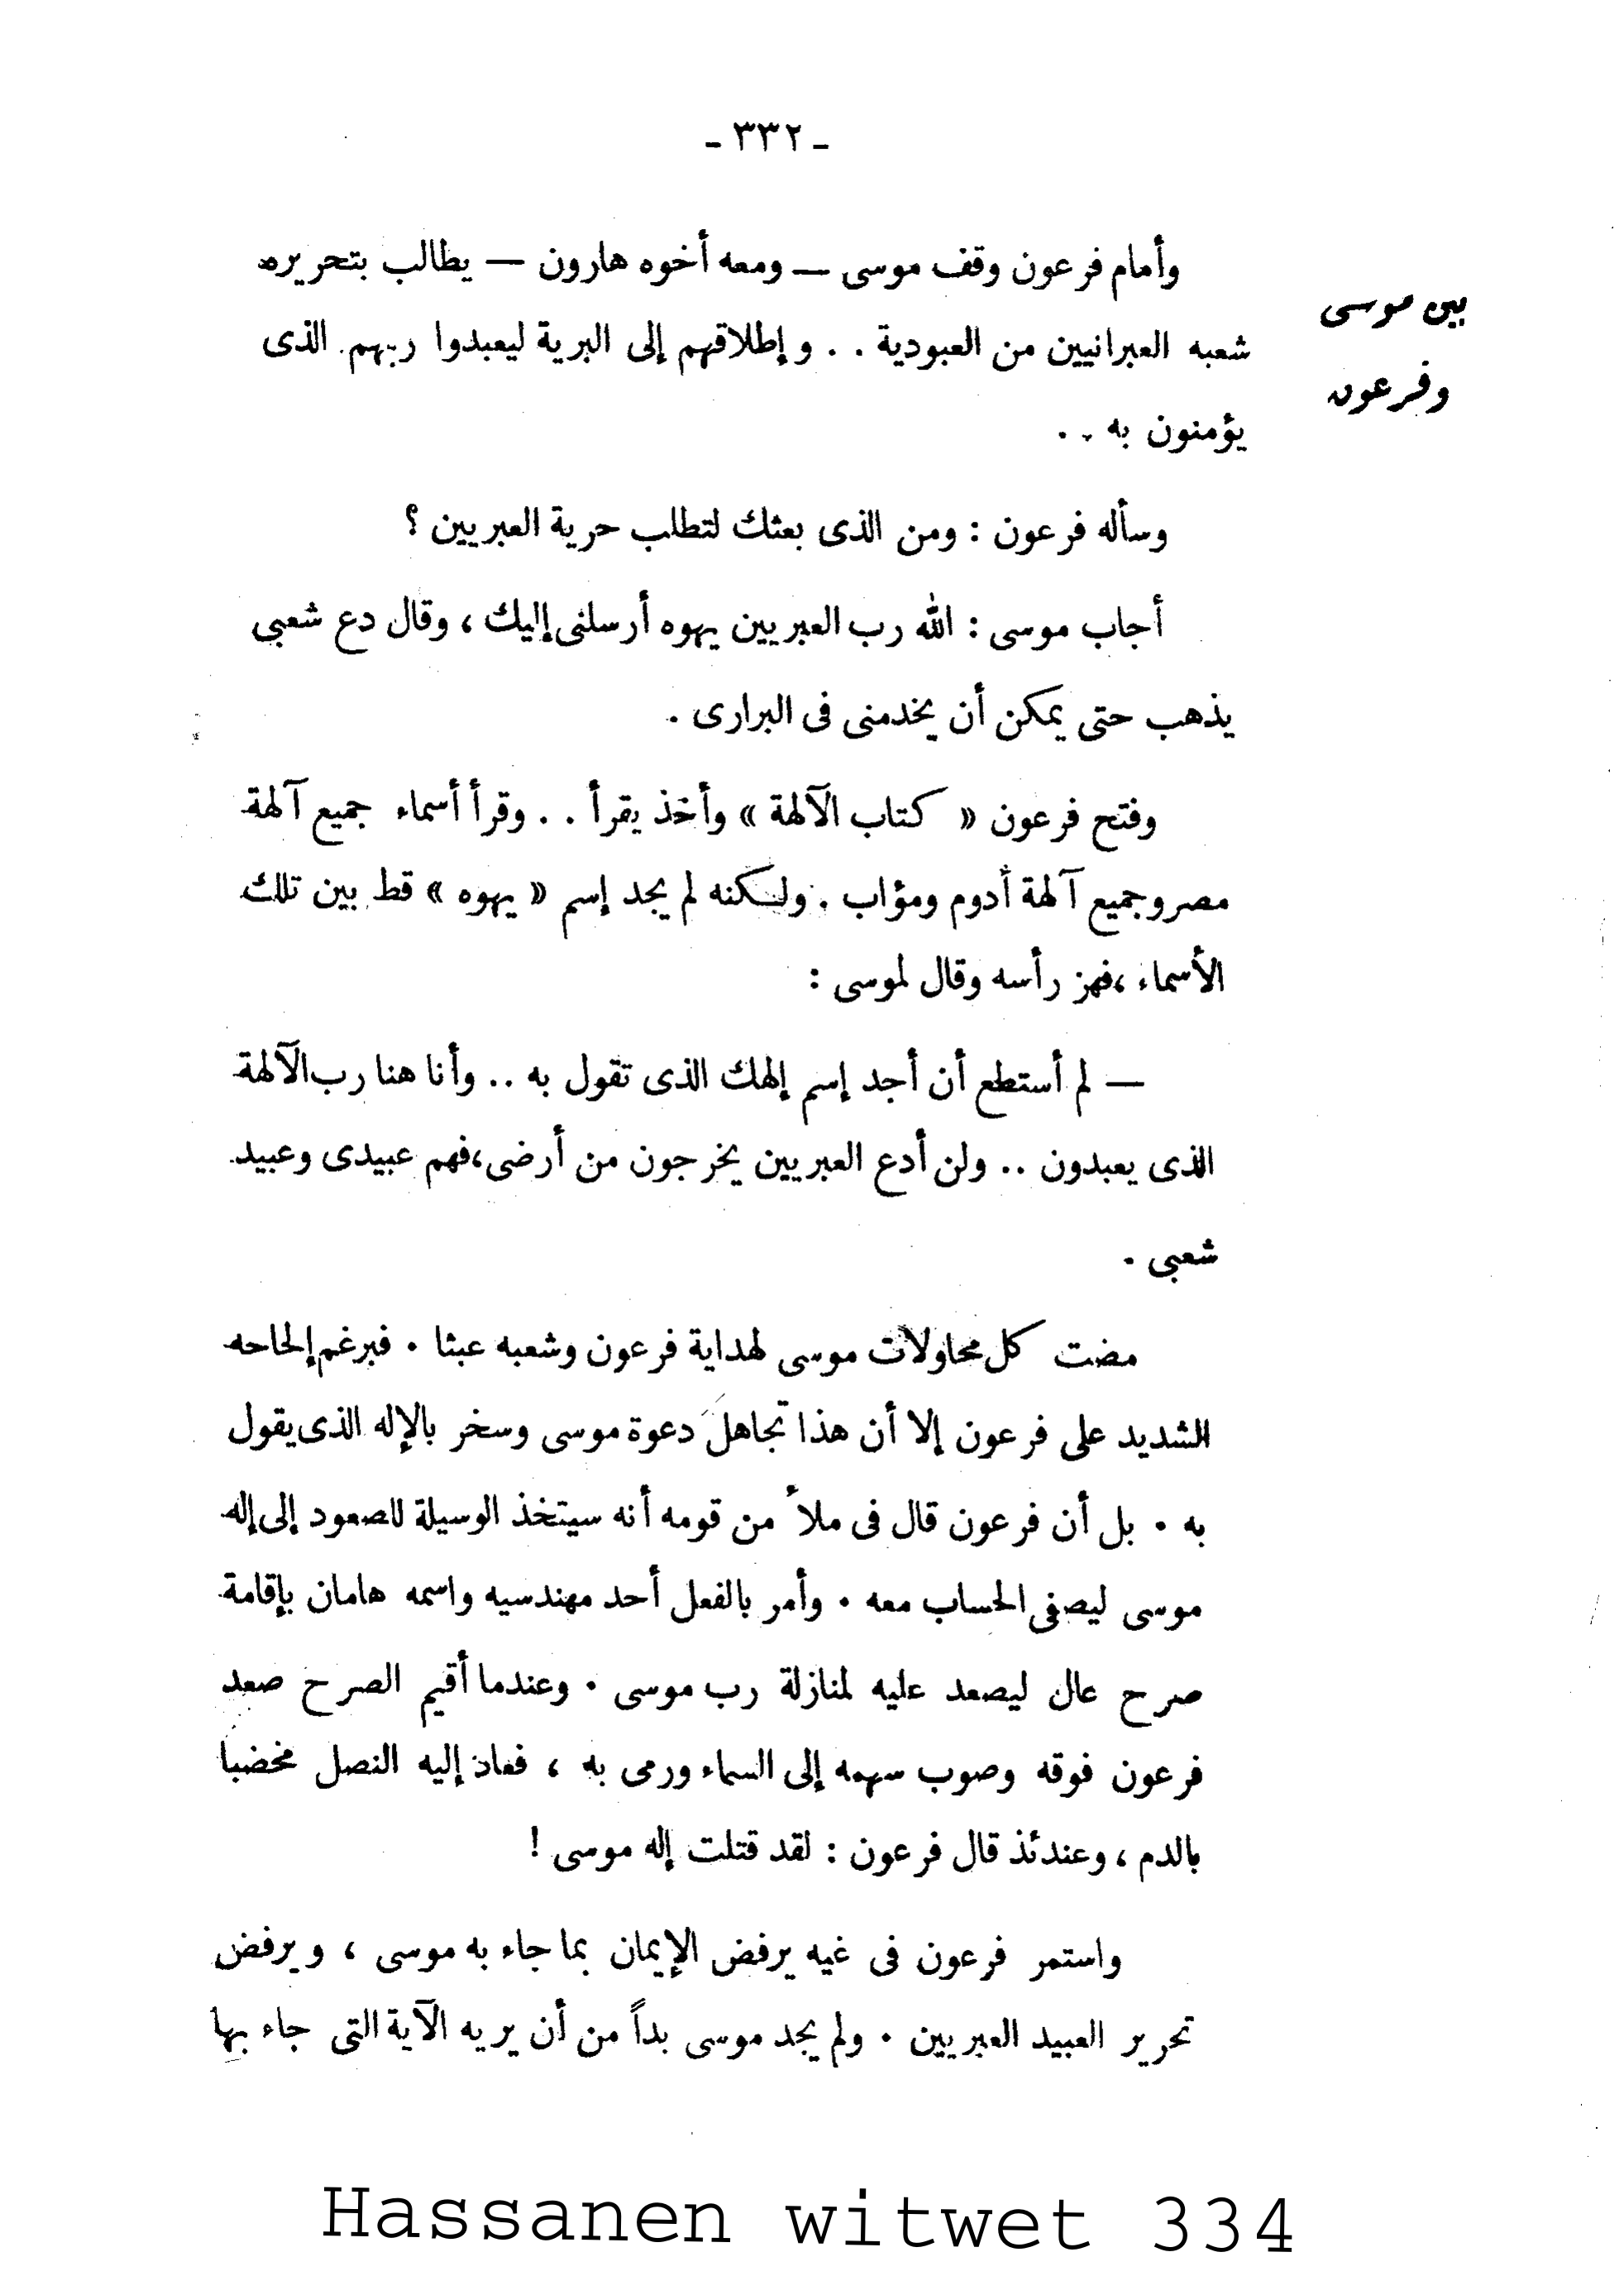 - ٣٣٢ -
بين موسى
وفرعون
وأمام فرعون وقف موسى — ومعه أخوه هارون — يطالب بتحريره
شعبه العبرانيين من العبودية . . وإطلاقهم إلى البرية ليعبدوا ربهم الذى
يؤمنون به . .
وسأله فرعون : ومن الذى بعثك لتطلب حرية العبريين ؟
أجاب موسى : الله رب العبريين يهوه أرسلنى إليك ، وقال دع شعبى
يذهب حتى يمكن أن يخدمنى فى البرارى .
وفتح فرعون « كتاب الآلهة » وأخذ يقرأ . . وقرأ أسماء جميع آلهة
مصر وجميع آلهة أدوم ومؤاب . ولكنه لم يجد إسم « يهوه » قط بين تلك
الأسماء ، فهز رأسه وقال لموسى :
— لم أستطع أن أجد إسم إلهك الذى تقول به .. وأنا هنا رب الآلهة
الذى يعبدون .. ولن أدع العبريين يخرجون من أرضى ، فهم عبيدى وعبيد
شعبى .
مضت كل محاولات موسى لهداية فرعون وشعبه عبثا . فبرغم إلحاحه
الشديد على فرعون إلا أن هذا تجاهل دعوة موسى وسخر بالإله الذى يقول
به . بل أن فرعون قال فى ملأ من قومه أنه سيتخذ الوسيلة للصعود إلى إله
موسى ليصفى الحساب معه . وأمر بالفعل أحد مهندسيه واسمه هامان بإقامة
صرح عال ليصعد عليه لمنازلة رب موسى . وعندما أقيم الصرح صعد
فرعون فوقه وصوب سهمه إلى السماء ورمى به ، فعاد إليه النصل مخضبا
بالدم ، وعندئذ قال فرعون : لقد قتلت إله موسى !
واستمر فرعون فى غيه يرفض الإيمان بما جاء به موسى ، ويرفض
تحرير العبيد العبريين . ولم يجد موسى بداً من أن يريه الآية التى جاء بها
Hassanen witwet 334